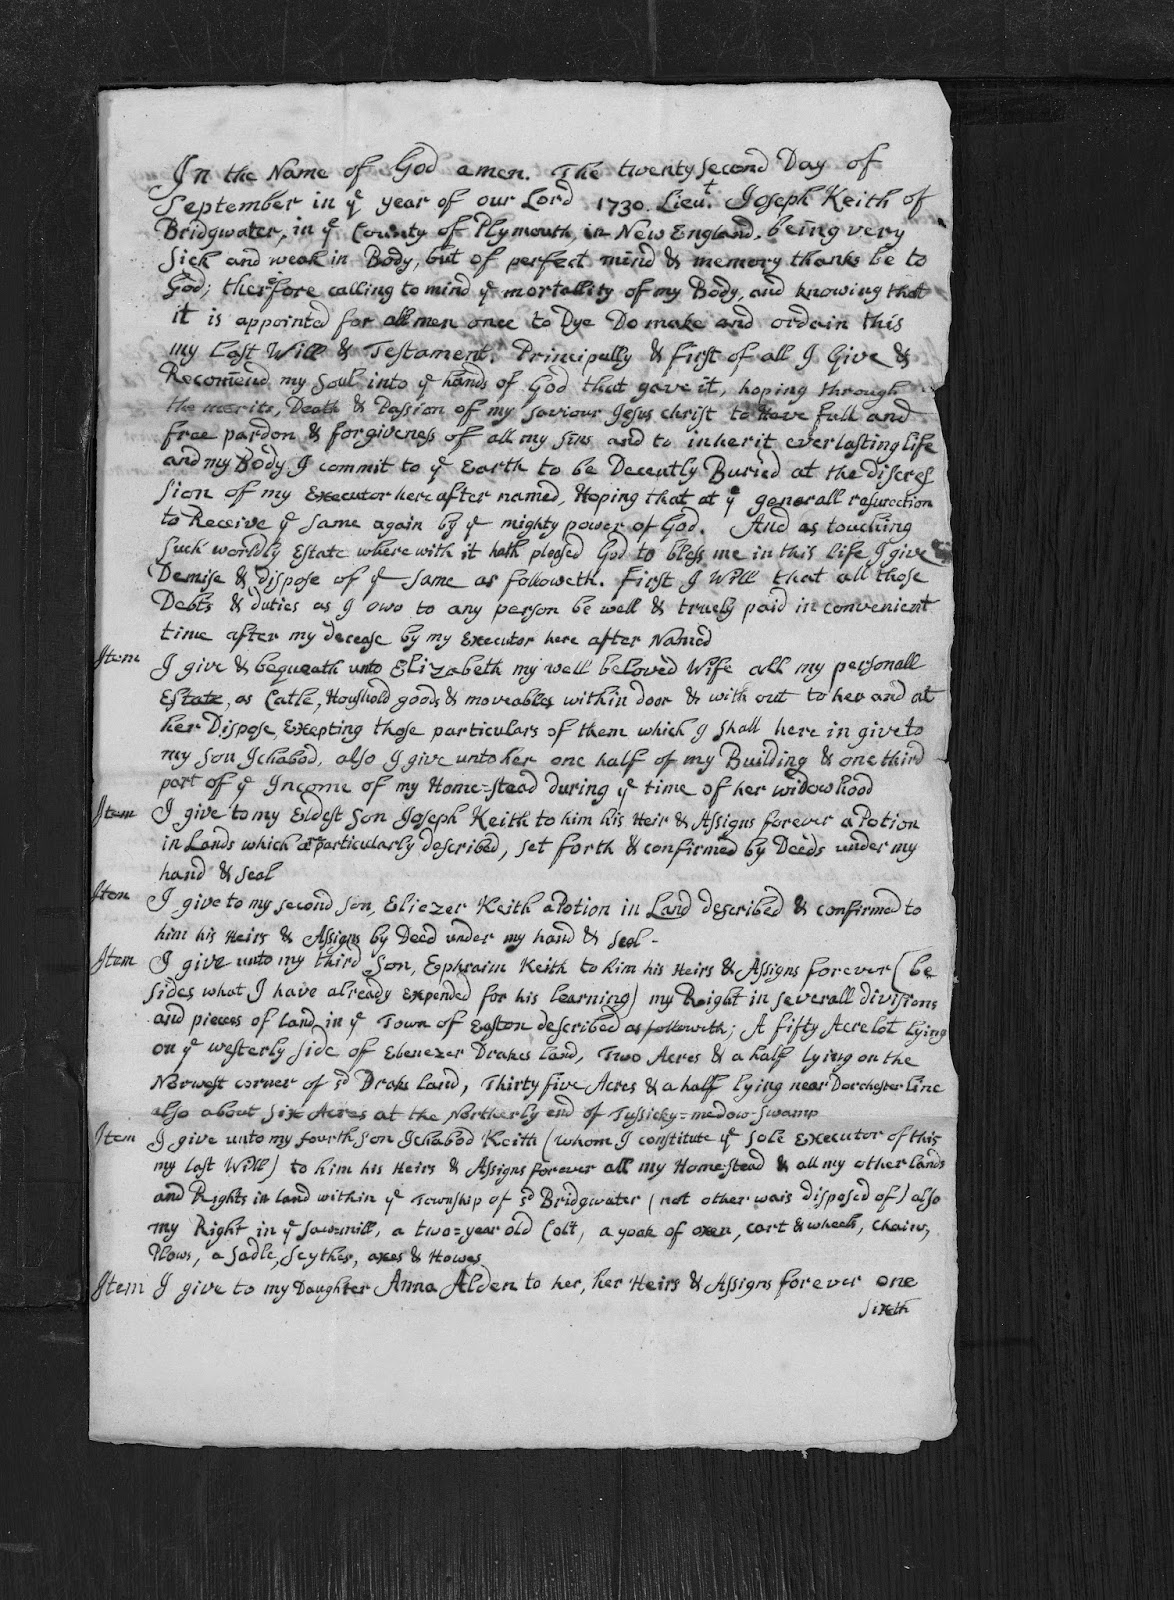 In the Name of God amen. The twenty second Day of
September in yͤ year of our Lord 1730. Lieut. Joseph Keith of
Bridgwater, in yͤ County of Plymouth, in New England, being very
sick and weak in Body, but of perfect mind & memory thanks be to
God; therefore calling to mind yͤ mortallity of my Body, and knowing that
it is appointed for all men once to Dye Do make and ordain this
my Last Will & Testament. Principally & first of all I Give &
Recomend my Soul into yͤ hands of God that gave it, hoping through
the merits, Death & Passion of my Saviour Jesus Christ to Have full and
free pardon & forgiveness of all my sins and to inherit everlasting life
and my Body I commit to yͤ Earth to be Decently Buried at the Discres
sion of my Executor here after named, Hoping that at yͤ generall resurection
to Receive yͤ same again by yͤ mighty power of God. And as touching
Such worldly Estate where with it hath pleased God to bless me in this life I give
Demise & dispose of yͤ same as followeth. First I Will that all those
Debts & duties as I owo to any person be well & truely paid in convenient
time after my decease by my Executor here after Named
Item I give & bequeath unto Elizabeth my well beloved Wife all my personall
Estate, as Catle, Houshold goods & moveables within door & with out to her and at
her Dispose, Excepting those particulars of them which I shall here in give to
my son Ichabod, also I give unto her one half of my Building & one third
part of yͤ Income of my Home=stead During yͤ time of her widowhood
Item I give to my Eldest Son Joseph Keith to him his Heir & Assigns forever a Potion
in Lands which are particularly described, set forth & confirmed by Deeds under my
hand & seal
Item I give to my second son, Eliezer Keith a Potion in Land described & confirmed to
him his Heirs & Assigns by Deed under my hand & seal -
Item I give unto my third Son, Ephraim Keith to him his Heirs & Assigns forever (be
sides what I have already Expended for his learning) my Right in severall divisions
and pieces of land in yͤ Town of Easton described as followith; A fifty Acre lot lying
on yͤ westerly side of Ebenezer Drakes land, Two Acres & a half lying on the
Norwest corner of sd Draks land, Thirty five Acres & a half lying near Dorchester line
also about six Acres at the Northerly end of Tussicky=medow-swamp
Item I give unto my fourth son Ichabod Keith (whom I constitute yͤ sole Executor of this
my last Will) to him his Heirs & Assigns forever all my Home-stead & all my other lands
and Rights in land within yͤ Township of sd Bridgwater (not other wais disposed of) also
my Right in yͤ saw=mill, a two=year old Colt, a yoak of oxen, cart & wheels, chains,
Plows, a Sadle, Scythes, axes & Howes
Item I give to my Daughter Anna Alden to her, her Heirs & Assigns forever one
sixth